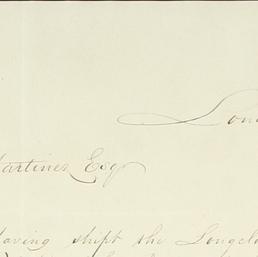 Lon
artinez Esqr
aving shipt the Longclo